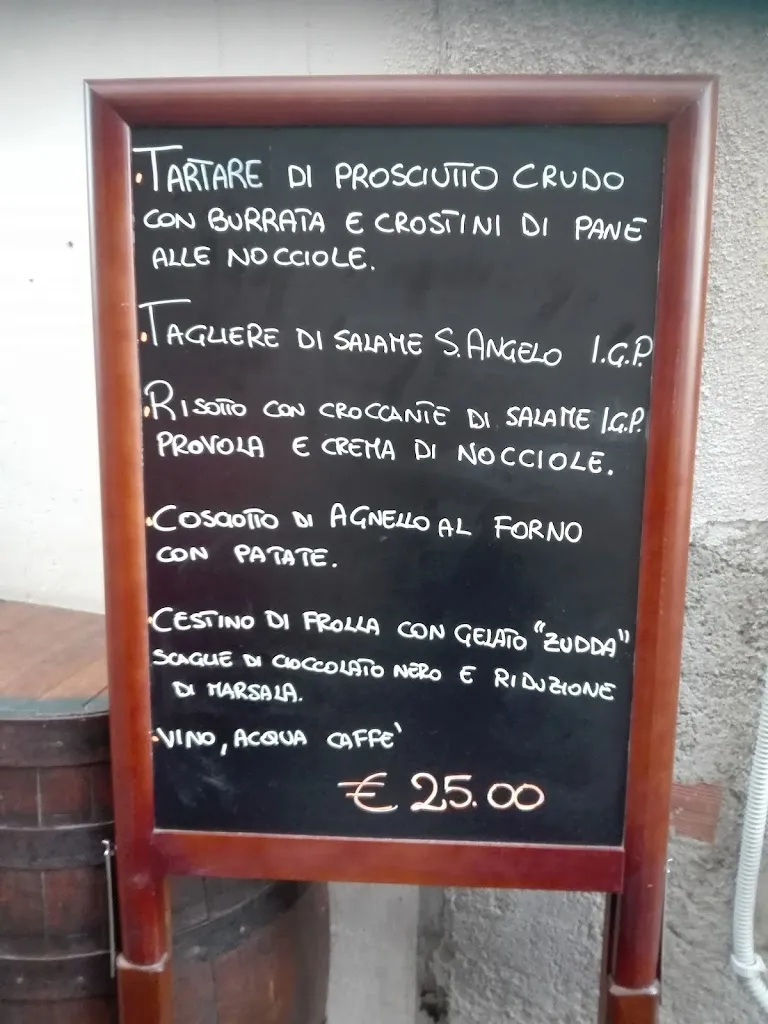 ·TARTARE DI PROSCIUTTO CRUDO
CON BURRATA E CROSTINI DI PANE
ALLE NOCCIOLE.
·TAGLIERE DI SALAME S. ANGELO I.G.P.
·RISOTTO CON CROCCANTE DI SALAME I.G.P.
PROVOLA E CREMA DI NOCCIOLE.
·COSCIOTTO DI AGNELLO AL FORNO
CON PATATE.
·CESTINO DI FROLLA CON GELATO "ZUDDA"
SCAGLIE DI CIOCCOLATO NERO E RIDUZIONE
DI MARSALA.
·VINO, ACQUA CAFFE'
€ 25.00